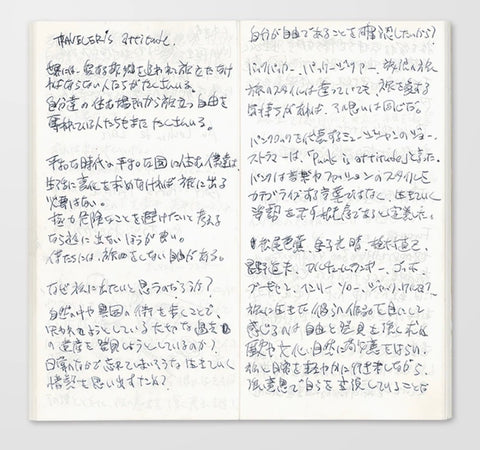 TRAVELER'S attitude.
世界には、愛する故郷を追われて旅をしなけ
ればならない人たちがたくさんいる。
自分達の住む場所から旅立つ自由を
奪われている人たちもまたたくさんいる。
平和な時代の平和な国に住む僕達は
生きるに変化を求めなければ旅に出る
必要はない。
極力危険なことを避けたいと考える
なら旅に出ないほうが良い。
僕たちには、旅をしない自由がある。
なぜ旅に出たいと思うのだろうか?
自然の中や異国の街を歩くことで、
失われようとしている大切な過去
の遺産を発見しようとしているのか?
日常の中で忘れてしまいそうな生きていく
情熱を思い出すため?
自分が自由であることを確認したいから?
バックパッカー、パッケージツアー、放浪の旅
旅のスタイルは違っていても、旅を愛する
気持ちがあれば、その思いは同じだ。
パンクロックを代表するミュージシャンのジョー・
ストラマーは、「Punk is attitude」と言った。
パンクは音楽やファッションのスタイルを
カテゴライズする言葉ではなく、生きていく
姿勢を示す状態であると定義した。
松尾芭蕉、金子光晴、植村直己、
星野道夫、ゴッホ、
ゴーギャン、ヘンリー・ソロー、
旅に生きた彼らの作品を目にして
感じるのは自由と発見を強く求め
歴史や文化、自然に敬意をはらい、
旅と日常を軽やかに行き来しながら、
強い意思で自らを表現していることだ